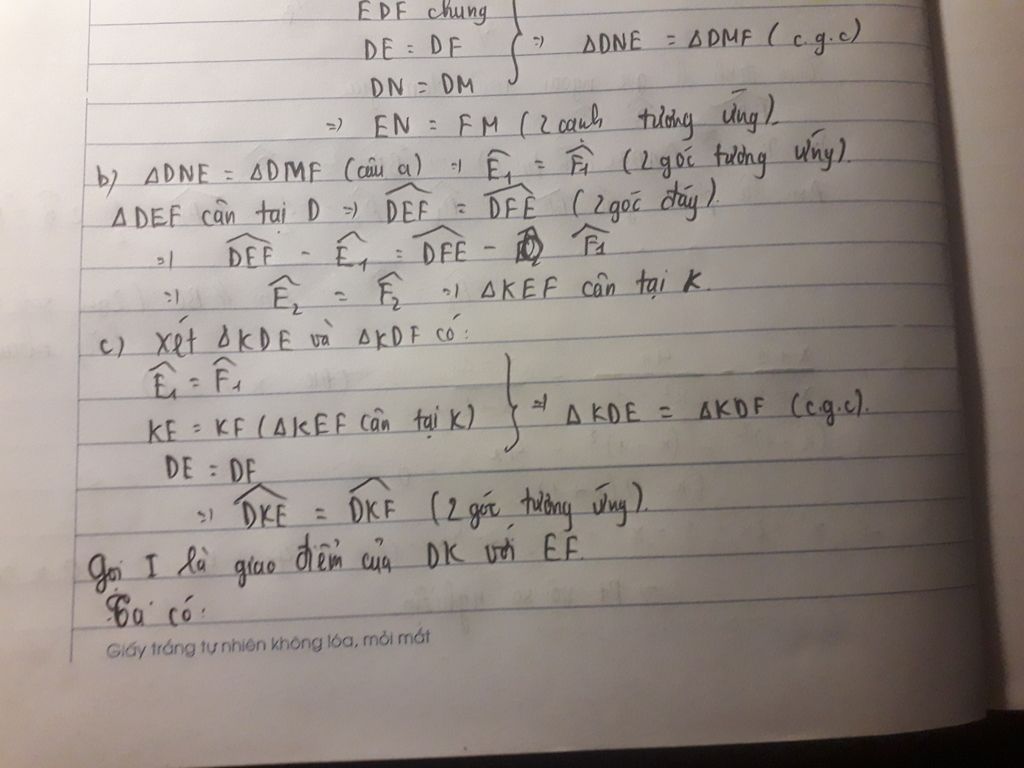 EDF chung
DE = DF
DN = DM
=> ΔDNE = ΔDMF ( c.g.c)
=> EN = FM ( 2 cạnh tương ứng).
b) ΔDNE = ΔDMF (câu a) => Ê₁ = F̂₁ (2 góc tương ứng).
ΔDEF cân tại D => DEF = DFE (2 góc đáy).
=> DEF - Ê₁ = DFE - F̂₁
=> Ê₂ = F̂₂ => ΔKEF cân tại K.
c) Xét ΔKDE và ΔKDF có:
Ê₁ = F̂₁
KE = KF (ΔKEF cân tại K)
DE = DF
=> ΔKDE = ΔKDF (c.g.c).
=> DKE = DKF (2 góc tương ứng).
Gọi I là giao điểm của DK với EF.
Ta có:
Giấy trắng tự nhiên không lóa, mỏi mắt